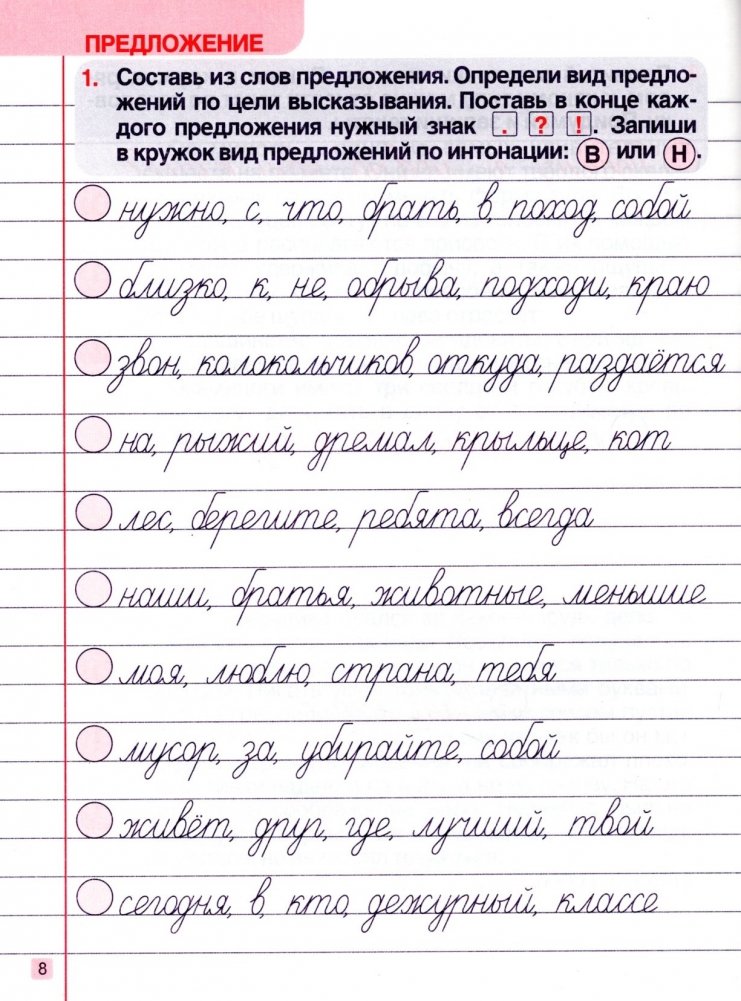 ПРЕДЛОЖЕНИЕ
1. Составь из слов предложения. Определи вид предло-
жений по цели высказывания. Поставь в конце каж-
дого предложения нужный знак . ? ! . Запиши
в кружок вид предложений по интонации: В или Н .
нужно, с, что, брать, в, поход, собой
близко, к, не, обрыва, подходи, краю
звон, колокольчиков, откуда, раздаётся
на, рыжий, дремал, крыльце, кот
лес, берегите, ребята, всегда
наши, братья, животные, меньшие
моя, люблю, страна, тебя
мусор, за, убирайте, собой
живёт, друг, где, лучший, твой
сегодня, в, кто, дежурный, классе
8